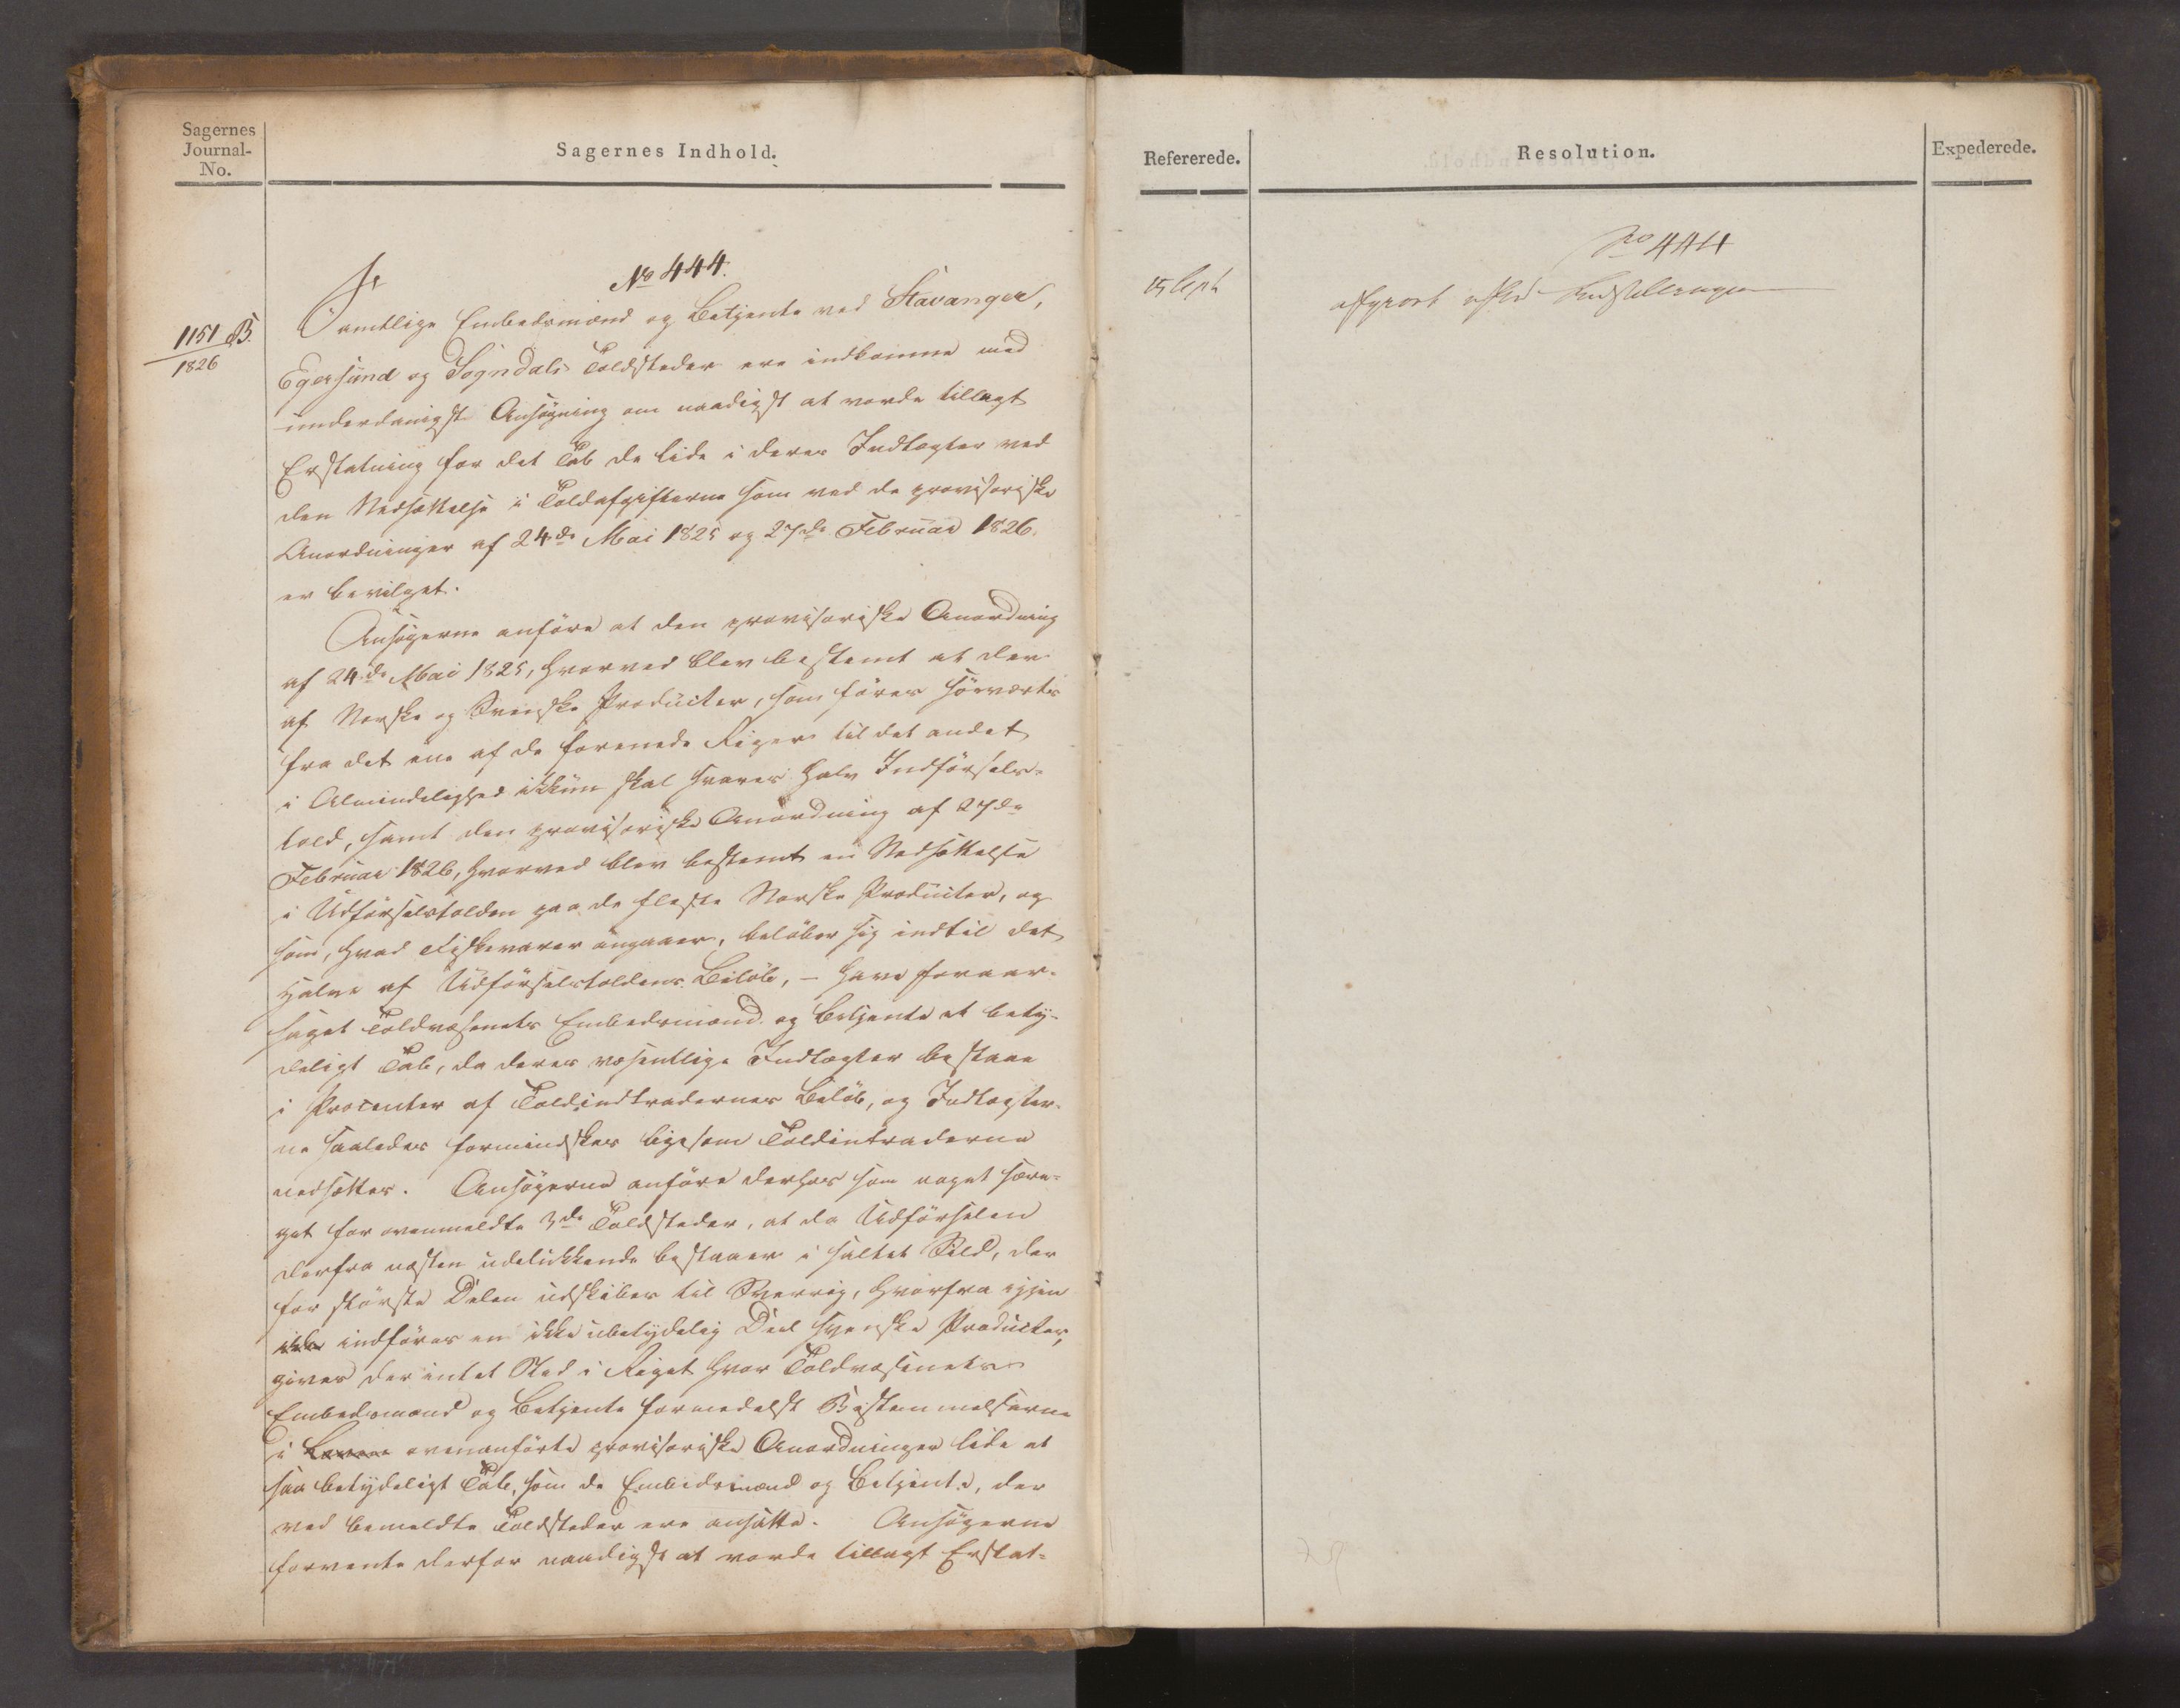 Sagernes
Journal-
No.
Sagernes Indhold.
No 444.
1151 B.
1826
Samtlige Embedsmænd og Betjente ved Stavanger,
Egersund og Sogndals Toldsteder ere indkomne med
underdanigst Ansøgning om naadigst at vorde tillagt
Erstatning for det Tab de lide i deres Indtægter ved
den Nedsættelse i Toldafgifterne som ved de provisoriske
Anordninger af 24de Mai 1825 og 27de Februar 1826.
er bevilget.
Ansøgerne anføre at den provisoriske Anordning
af 24de Mai 1825, hvorved blev bestemt at der
af Norske og Svenske Producter, som føres søeværts
fra det ene af de forenede Riger til det andet
i Almindelighed ikkun skal svares halv Indførsels-
told, samt den provisoriske Anordning af 27de
Februar 1826, hvorved blev bestemt en Nedsættelse
i Udførselstolden paa de fleste Norske Producter, og
som, hvad Fiskevarer angaaer, beløber sig indtil det
halve af Udførselstoldens Beløb, – have foraar-
saget Toldvæsenets Embedsmænd og Betjente et bety-
deligt Tab, da deres væsentlige Indtægter bestaae
i Procenter af Toldindtradernes Beløb, og Indtægter-
ne saaledes formindskes ligesom Toldintraderne
nedsættes. Ansøgerne anføre derhos som noget sære-
get for ovenmeldte 3de Toldsteder, at da Udførselen
derfra næsten udelukkende bestaaer i saltet Sild, der
for største Delen udskibes til Sverrig, hvorfra igjen
indføres en ikke ubetydelig Deel svenske Producter,
gives der intet Sted i Riget hvor Toldvæsenets
Embedsmænd og Betjente formedelst Bestemmelserne
i ovenanførte provisoriske Anordninger lide et
saa betydeligt Tab, som de Embedsmænd og Betjente, der
ved bemeldte Toldsteder ere ansatte. Ansøgerne
forvente derfor naadigst at vorde tillagt Erstat-
Refererede.
Resolution.
Expederede.
15 Sept
No 444
afgjort efter Indstillingen